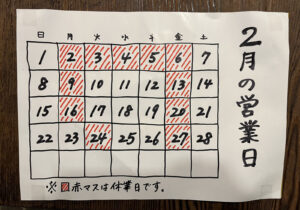 2月の営業日
日 月 火 水 木 金 土
1 2 3 4 5 6 7
8 9 10 11 12 13 14
15 16 17 18 19 20 21
22 23 24 25 26 27 28
※ 赤マスは休業日です。